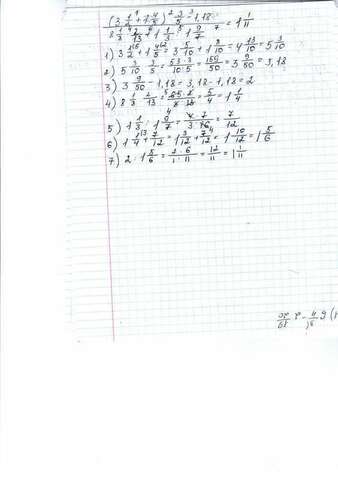 (3 1/2 ¹+ 1 4/5) ²· 3/5 ³- 1,18
8 1/3 ⁴· 2/13 ⁶+ 1 1/3 ⁵: 1 9/7 ⁷ = 1 1/11
1) 3 1/2 + 1 4/5 = 3 5/10 + 1 8/10 = 4 13/10 = 5 3/10
2) 5 3/10 · 3/5 = 53·3/10·5 = 159/50 = 3 9/50 = 3,18
3) 3 9/50 - 1,18 = 3,18 - 1,18 = 2
4) 8 1/3 · 2/13 = = 5/4 = 1 1/4
5) 1 1/3 : 1 9/7 = 4·7/3·16 = 7/12
6) 1 1/4 + 7/12 = 1 3/12 + 7/12 = 1 10/12 = 1 5/6
7) 2 : 1 5/6 = 2·6/1·11 = 12/11 = 1 1/11